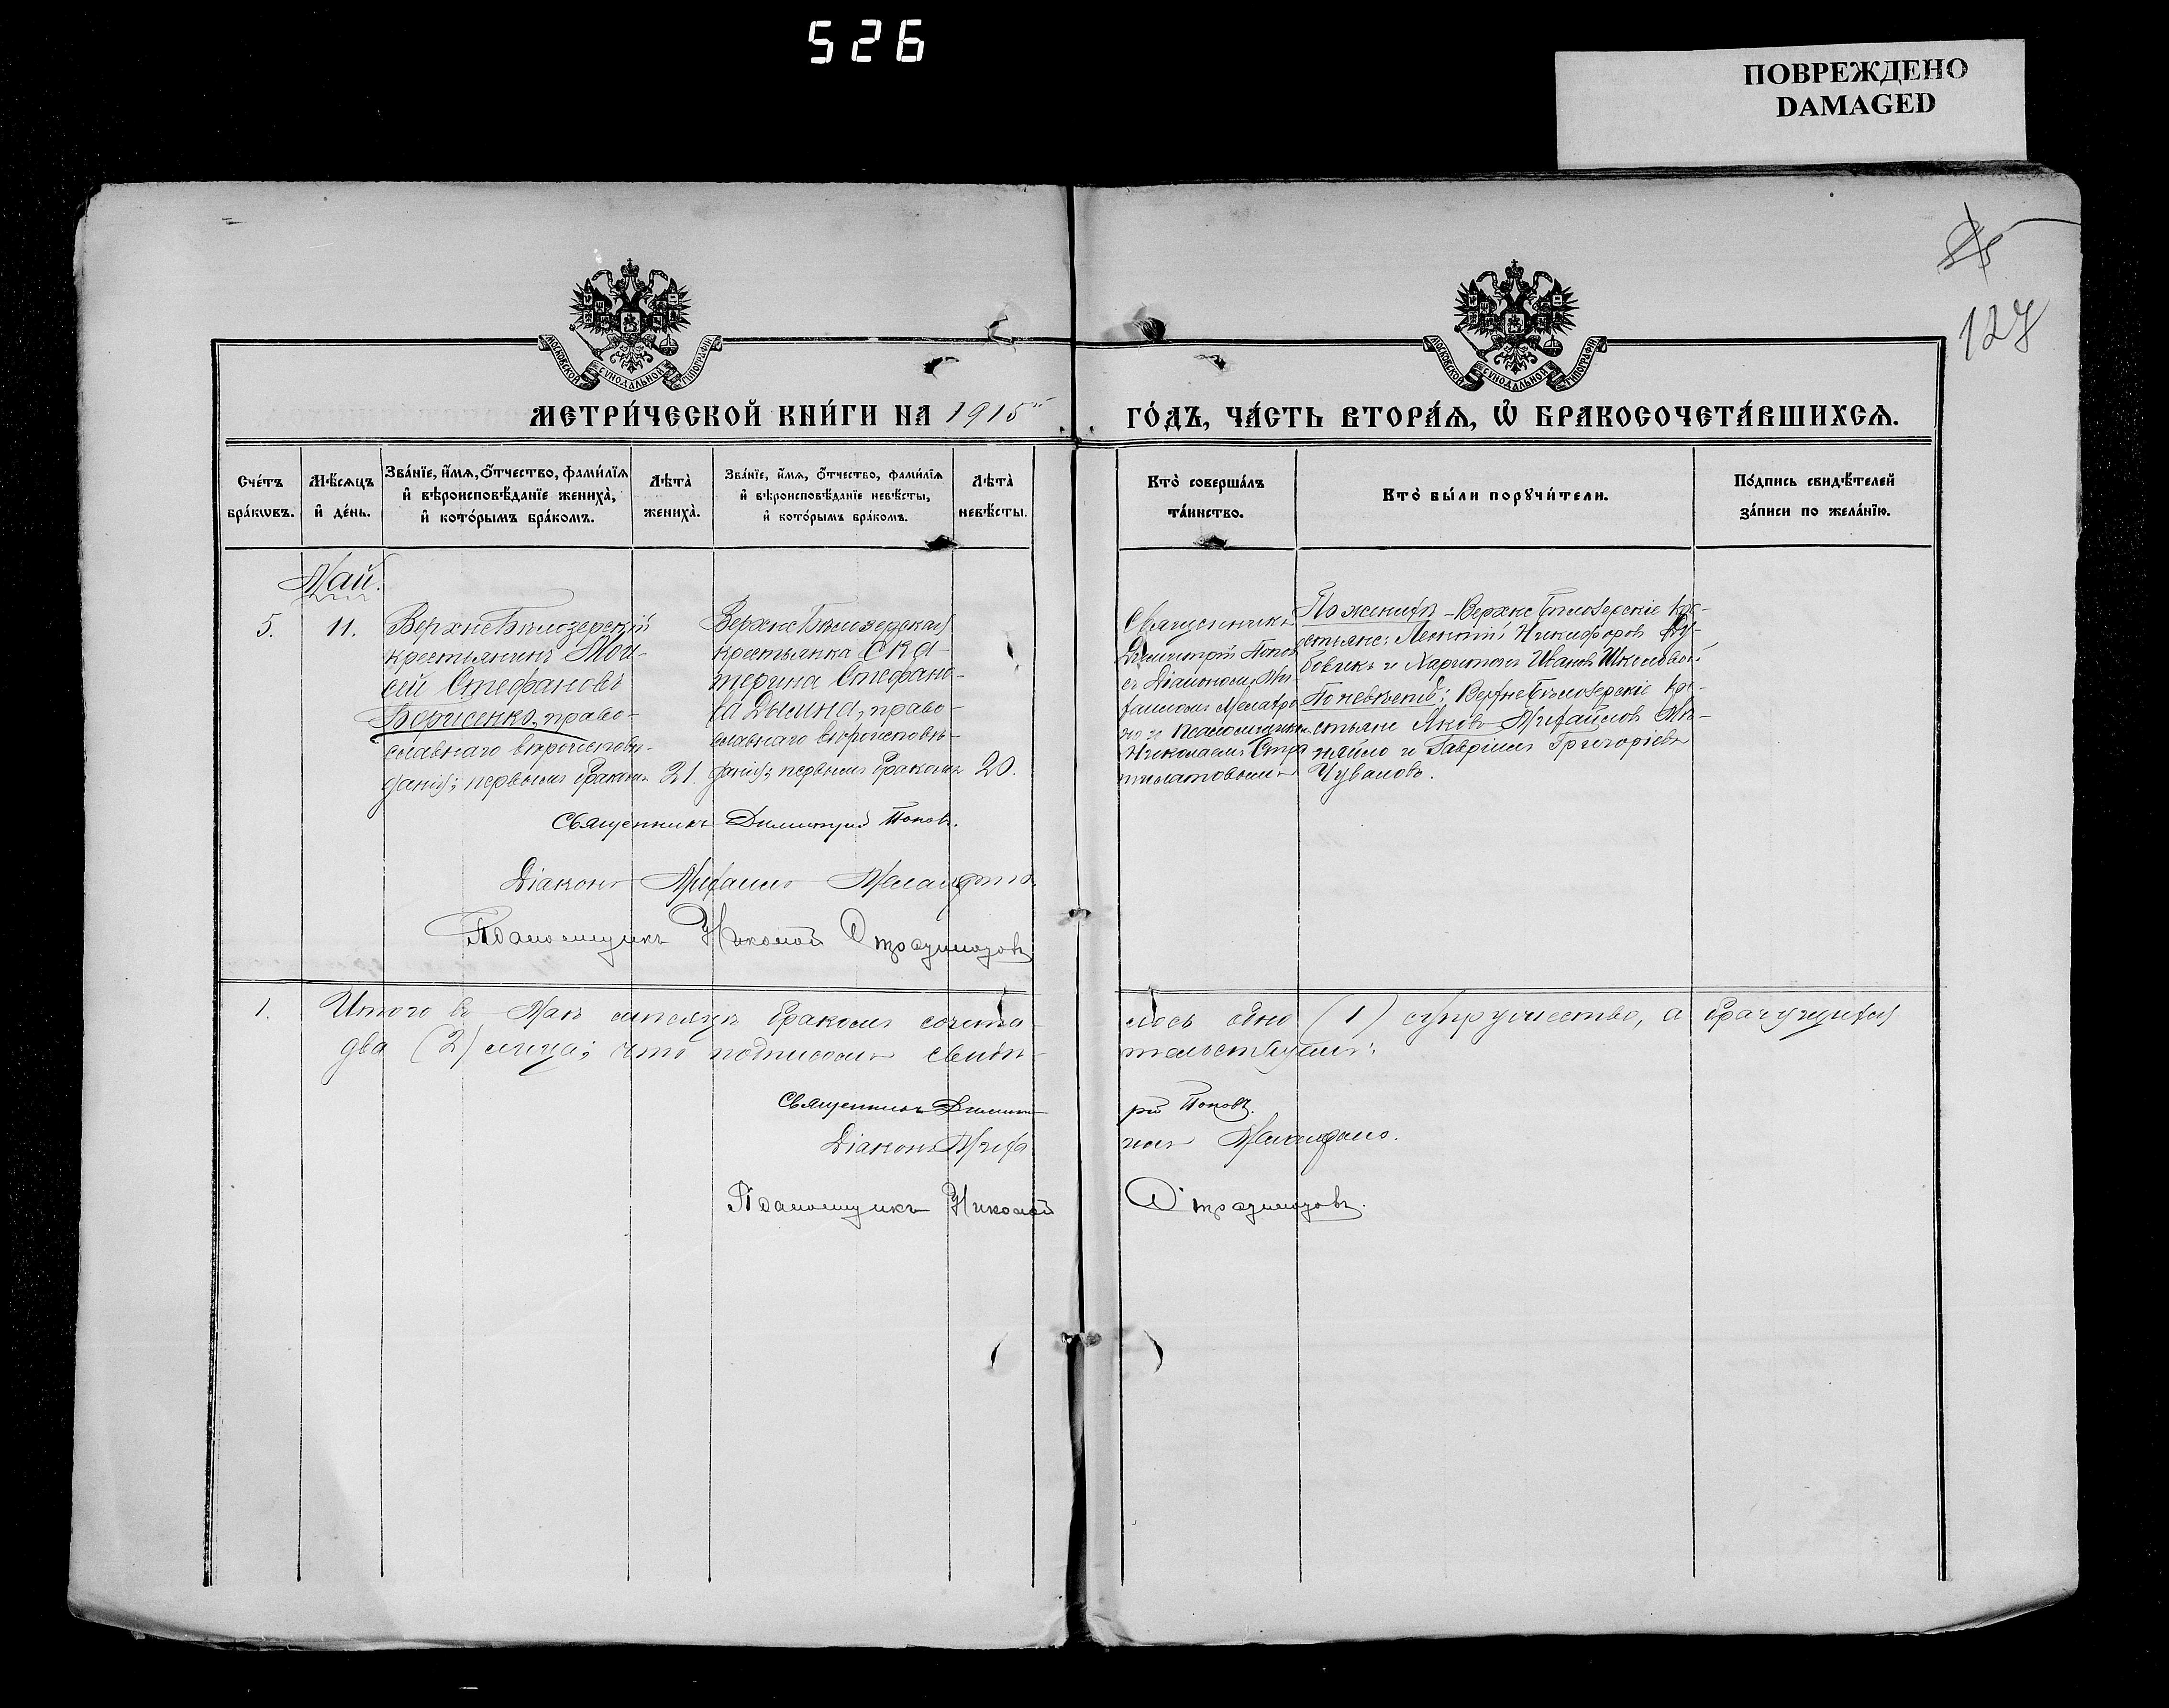 526
ПОВРЕЖДЕНО
DAMAGED
127
МОСКОВСКОЙ СУНОДАЛЬНОЙ ТИПОГРАФІИ
МОСКОВСКОЙ СУНОДАЛЬНОЙ ТИПОГРАФІИ
МЕТРИ́ЧЕСКОЙ КНИ́ГИ НА 1915й
ГО́ДЪ, ЧА́СТЬ ВТОРА́Я, Ѡ БРАКОСОЧЕТА́ВШИХСЯ.
Сче́тъ
бра́кѡвъ.
Мѣ́сяцъ
и҆ де́нь.
Зва́нїе, и҆́мя, ѻ҆́тчество, фами́лїя
и҆ вѣроисповѣ́данїе жениха̀,
и҆ кото́рымъ бра́комъ.
Лѣта̀
жениха̀.
Зва́нїе, и҆́мя, ѻ҆́тчество, фами́лїя
и҆ вѣроисповѣ́данїе невѣ́сты,
и҆ кото́рымъ бра́комъ.
Лѣта̀
невѣ́сты.
Кто̀ соверша́лъ
та́инство.
Кто̀ бы́ли порꙋчи́тели.
По́дпись свидѣ́телей
за́писи по жела́нїю.
Май.
5.
11.
ВерхнеБѣлозерскій
крестьянинъ Мои-
сей Стефановъ
Борисенко, право-
славнаго вѣроисповѣ-
данія; первымъ бракомъ
21.
ВерхнеБѣлозерская
крестьянка Ека-
терина Стефано-
ва Дымина, право-
славнаго вѣроисповѣ-
данія; первымъ бракомъ
20.
Священникъ
Димитрій Попов
съ Діакономъ Ми-
хаиломъ
но и Псаломщикомъ
Николаемъ Стра
тилатовымъ
По женихѣ - ВерхнеБѣлозерскіе кре-
стьяне: Леонтій Никифоровъ
бовикъ и Харитонъ Ивановъ
По невѣстѣ: ВерхнеБѣлозерскіе кре-
стьяне Яковъ Михайловъ
и Гавріилъ Григоріевъ
Чуваловъ.
Священникъ Димитрій Поповъ.
Діаконъ Михаилъ
Псаломщикъ Николай Стратилатовъ
1.
Итого въ Маѣ мѣсяцѣ бракомъ сочета-
лось одно (1) супружество, а брачущихся
два (2) лица; что подписомъ свидѣ-
тельствуемъ:
Священникъ Димит
рій Поповъ.
Діаконъ Миха
илъ
Псаломщикъ Николай
Стратилатовъ.